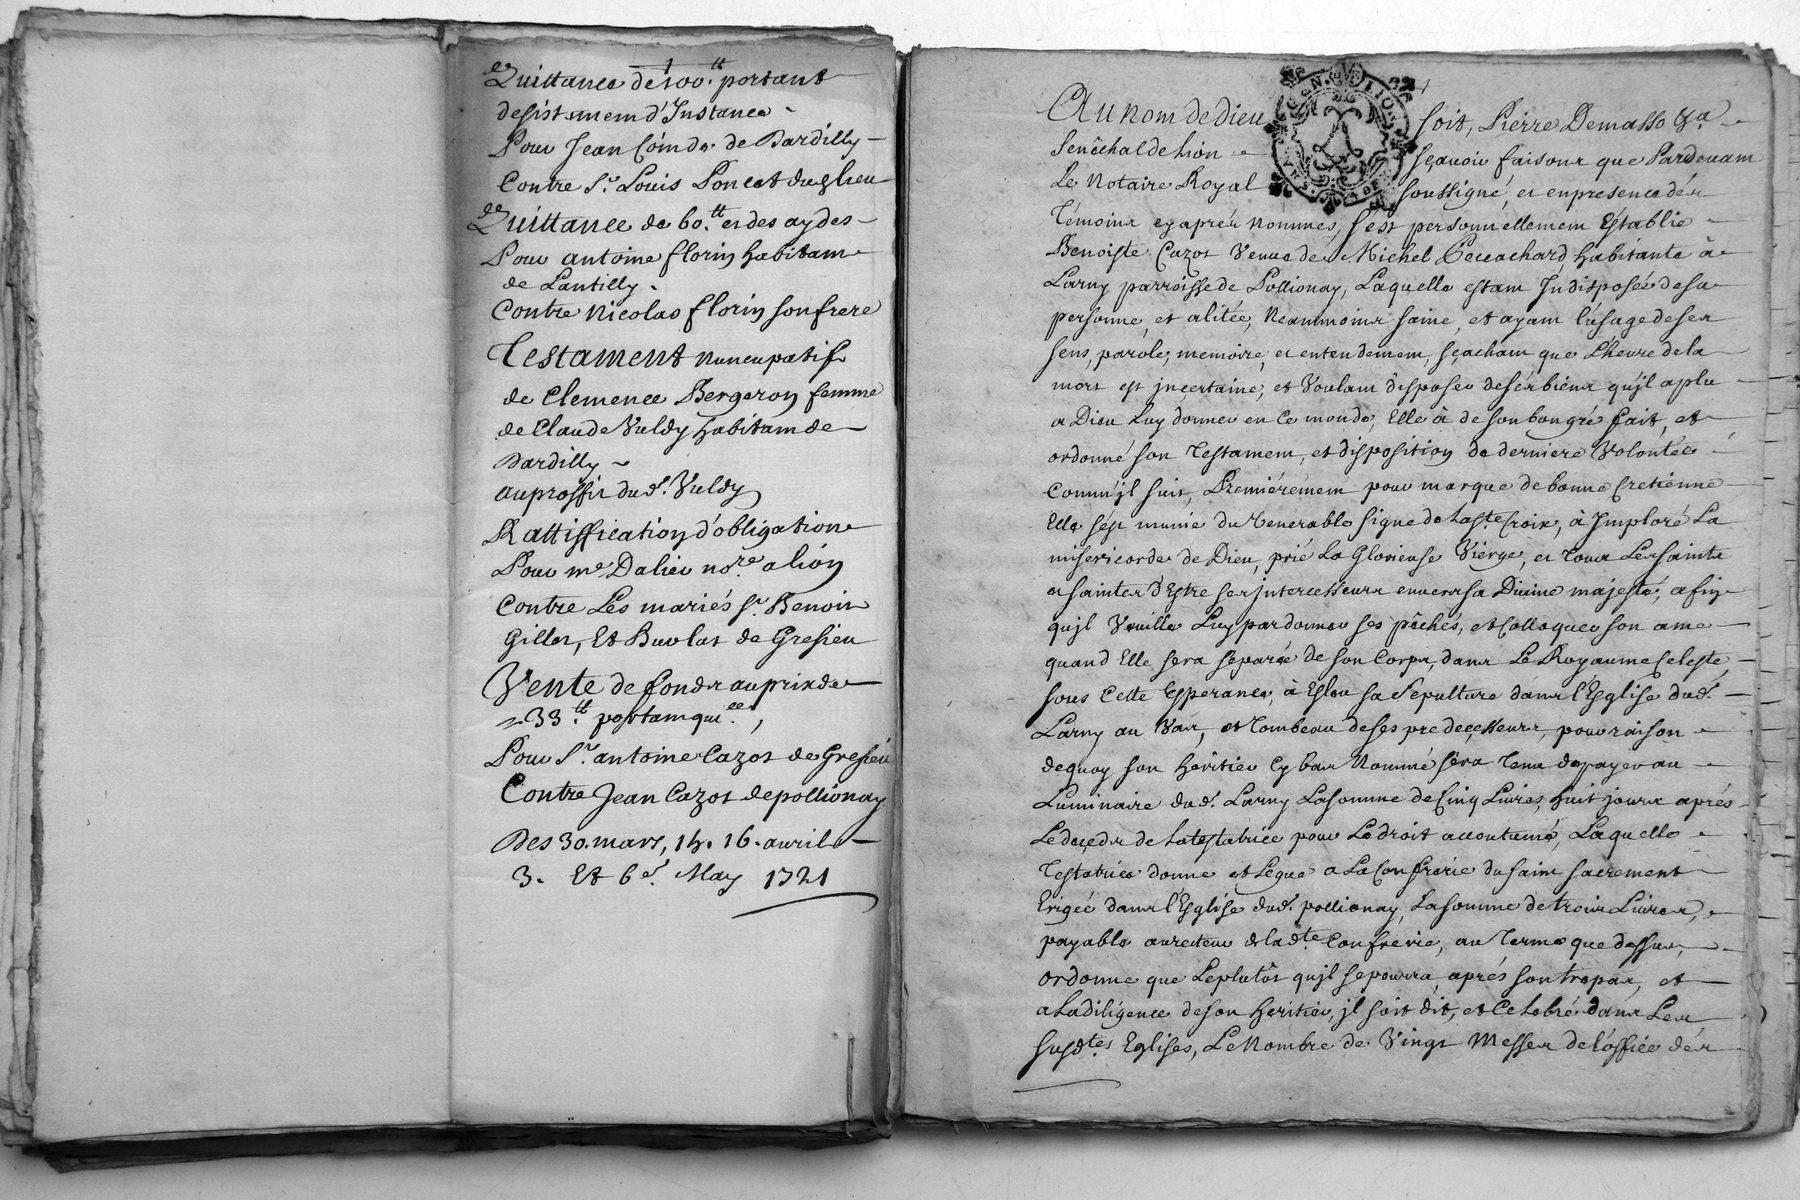 Quittance de 100.tt portant
desistemem d'Instance
Pour Jean Coindr de Dardilly
Contre Sr. Louis Poncet dud lieu
Quittance de 60.tt et des aydes
Pour antoine florin habitam
de Lantilly
Contre Nicolas florin son frere
Testament Nuncupatif
de Clemence Bergeron femme
de Claude Vuldy habitam de
Dardilly
au proffit dud. Vuldy
Rattiffication d'obligation
Pour me. Dalieu nore. a lion
Contre Les mariés Sr. Benoin
Gillet, Et Burlat de Gresieu
Vente de fondr au prix de
33.tt portam quiee.,
Pour Sr. antoine Cazot de Gresieu
Contre Jean Cazot de pollionay
Des 30. mars, 14. 16. avril
3. Et 6e. May 1721
Au nom de dieu soit, Pierre Demasso &a
Senéchal de Lion sçavoir faisons que Pardevam
Le Notaire Royal soussigné, et en presence dér
Témoins cy aprés nommés, s'est personnellemem Establie
Benoiste Cazot Veuve de Michel habitante à
Larny parroisse de Pollionay, Laquelle estam Indisposée de sa
personne, et alitée, Neanmoins saine, et ayam l'usage de ses
sens, parole, memoire, et entendemem, sçacham que L'heure de la
mort est jncertaine, et Voulam disposer de sér biens qu'jl a plu
a Dieu Luy donner en Ce monde, Elle à de son bon gré fait, et
ordonné son Testamem, et disposition de derniere Volontée
Comm'jl suit, Premiéremem pour marque de bonne Cretienne
Elle s'ést munie du Venerable signe de La ste Croix, à Imploré La
misericorde de Dieu, prié La Glorieuse Viérge, et Tous Les saints
et saintes d'Estre ses jntercesseurs envers sa Divine majesté, afin
qu'jl Veuille Luy pardonner ses péchés, et Colloquer son ame
quand Elle sera separée de son Corps, dans Le Royaume Celeste,
sous Cette Esperance, à Esleu sa Sepulture dans l'Eglise dud.
Larny au Vas, et Tombeau de ses predecesseurs, pour raison
de quoy son héritier Cy bas Nommé sera Tenu de payer au
Luminaire dud. Larny La somme de Cinq Livres, huit jours aprés
Le decedr de La testatrice pour Le droit accoutumé, Laquelle
Testatrice donne et Légue a La Confrérie du saint sacrement
Erigée dans l'Eglise dud. pollionay, La somme de trois Livres,
payable au recteur de lad.te Confrerie, au Terme que dessus,
ordonne que Le plutôt qu'jl se pourra, aprés son trepas, et
a La diligence de son héritier, jl soit dit, et Celebré dans Les
susd.tes Eglises, Le Nombre de Vingt Messes de l'office dér